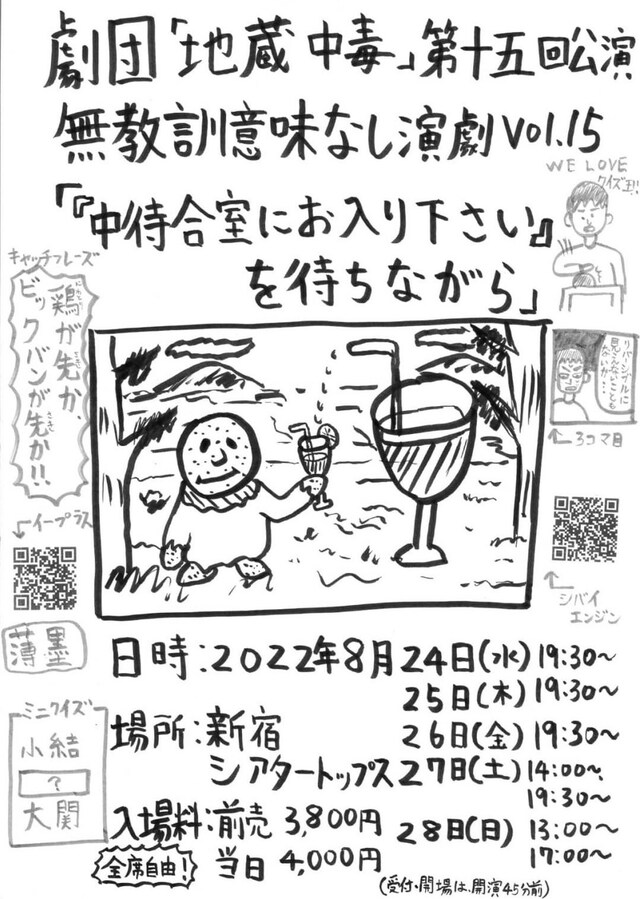 劇団「地蔵中毒」第十五回公演
無教訓意味なし演劇vol.15
「『中待合室にお入り下さい』
を待ちながら」
WE LOVE
クイズ王!!
キャッチフレーズ
鶏が先か、
にわとり
さき
ビックバンが先か!!
さき
リバーシブルに
見えないことも
ないが…
↑3コマ目
イープラス
シバイ
エンジン
薄墨
ミニクイズ
小結
?
大関
日時:2022年8月24日(水)19:30〜
25日(木)19:30〜
26日(金)19:30〜
27日(土)14:00〜、
19:30〜
28日(日)13:00〜
17:00〜
場所:新宿
シアタートップス
入場料:前売 3,800円
当日 4,000円
全席自由!
(受付・開場は、開演45分前)